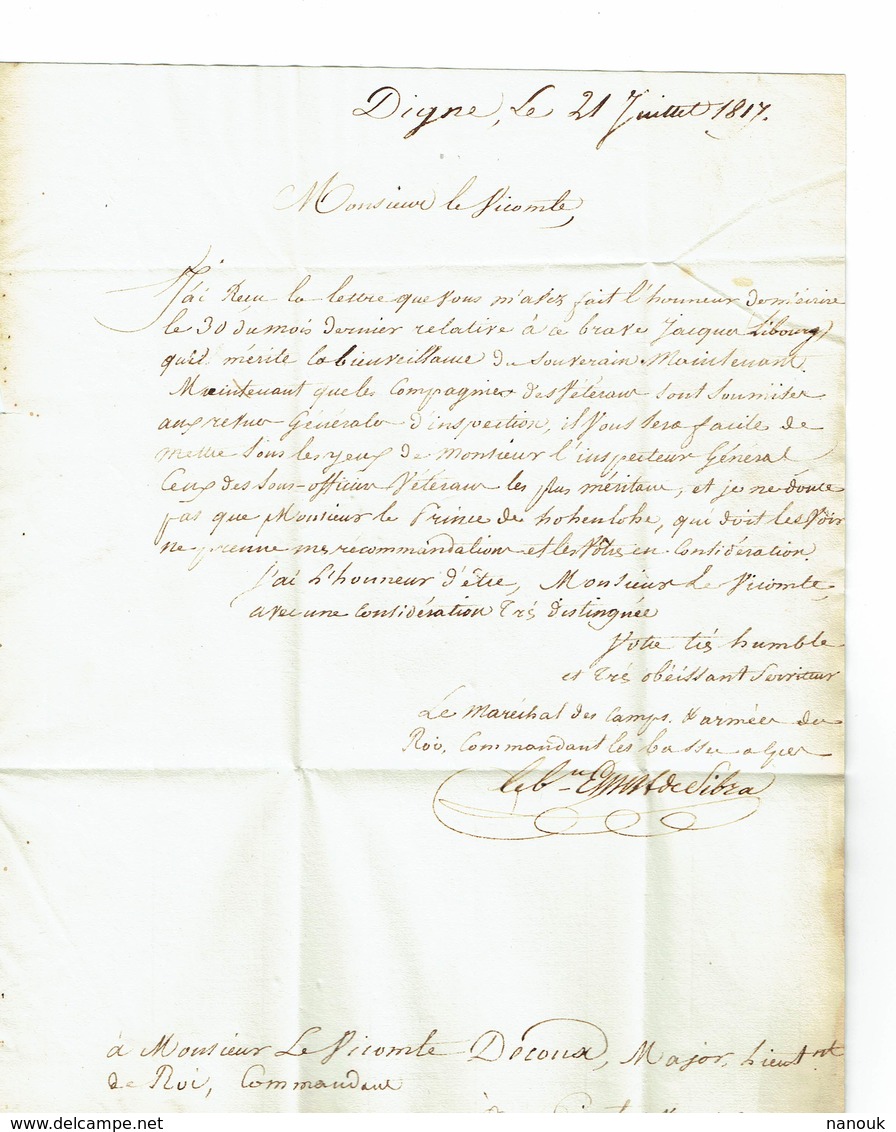 Digne, Le 21 Juillet 1817.
Monsieur le Vicomte,
J'ai Reçu la lettre que vous m'avez fait l'honneur de m'écrire
le 30 du mois dernier relative à ce brave Jacques Libourg,
qu'il mérite la bienveillance du Souverain Maintenant.
Maintenant que les Compagnies des Vétérans sont soumises
aux revues Générales d'inspection, il Vous sera facile de
mettre sous les yeux de Monsieur l'inspecteur Général
Ceux des Sous-officiers Vétérans les plus méritans, et je ne doute
pas que Monsieur le Prince de hohenlohe, qui doit les Voir
ne prenne mes recommandations et les Vôtres en Considération.
J'ai L'honneur d'être, Monsieur Le Vicomte,
avec une Considération Très distinguée
Votre très humble
et Très obéissant Serviteur
Le Maréchal des Camps & armées du
Roi, Commandant les basses alpes
le bon de Sibra
à Monsieur Le Vicomte Découx, Major, Lieutnt
de Roi, Commandant
à
nanouk